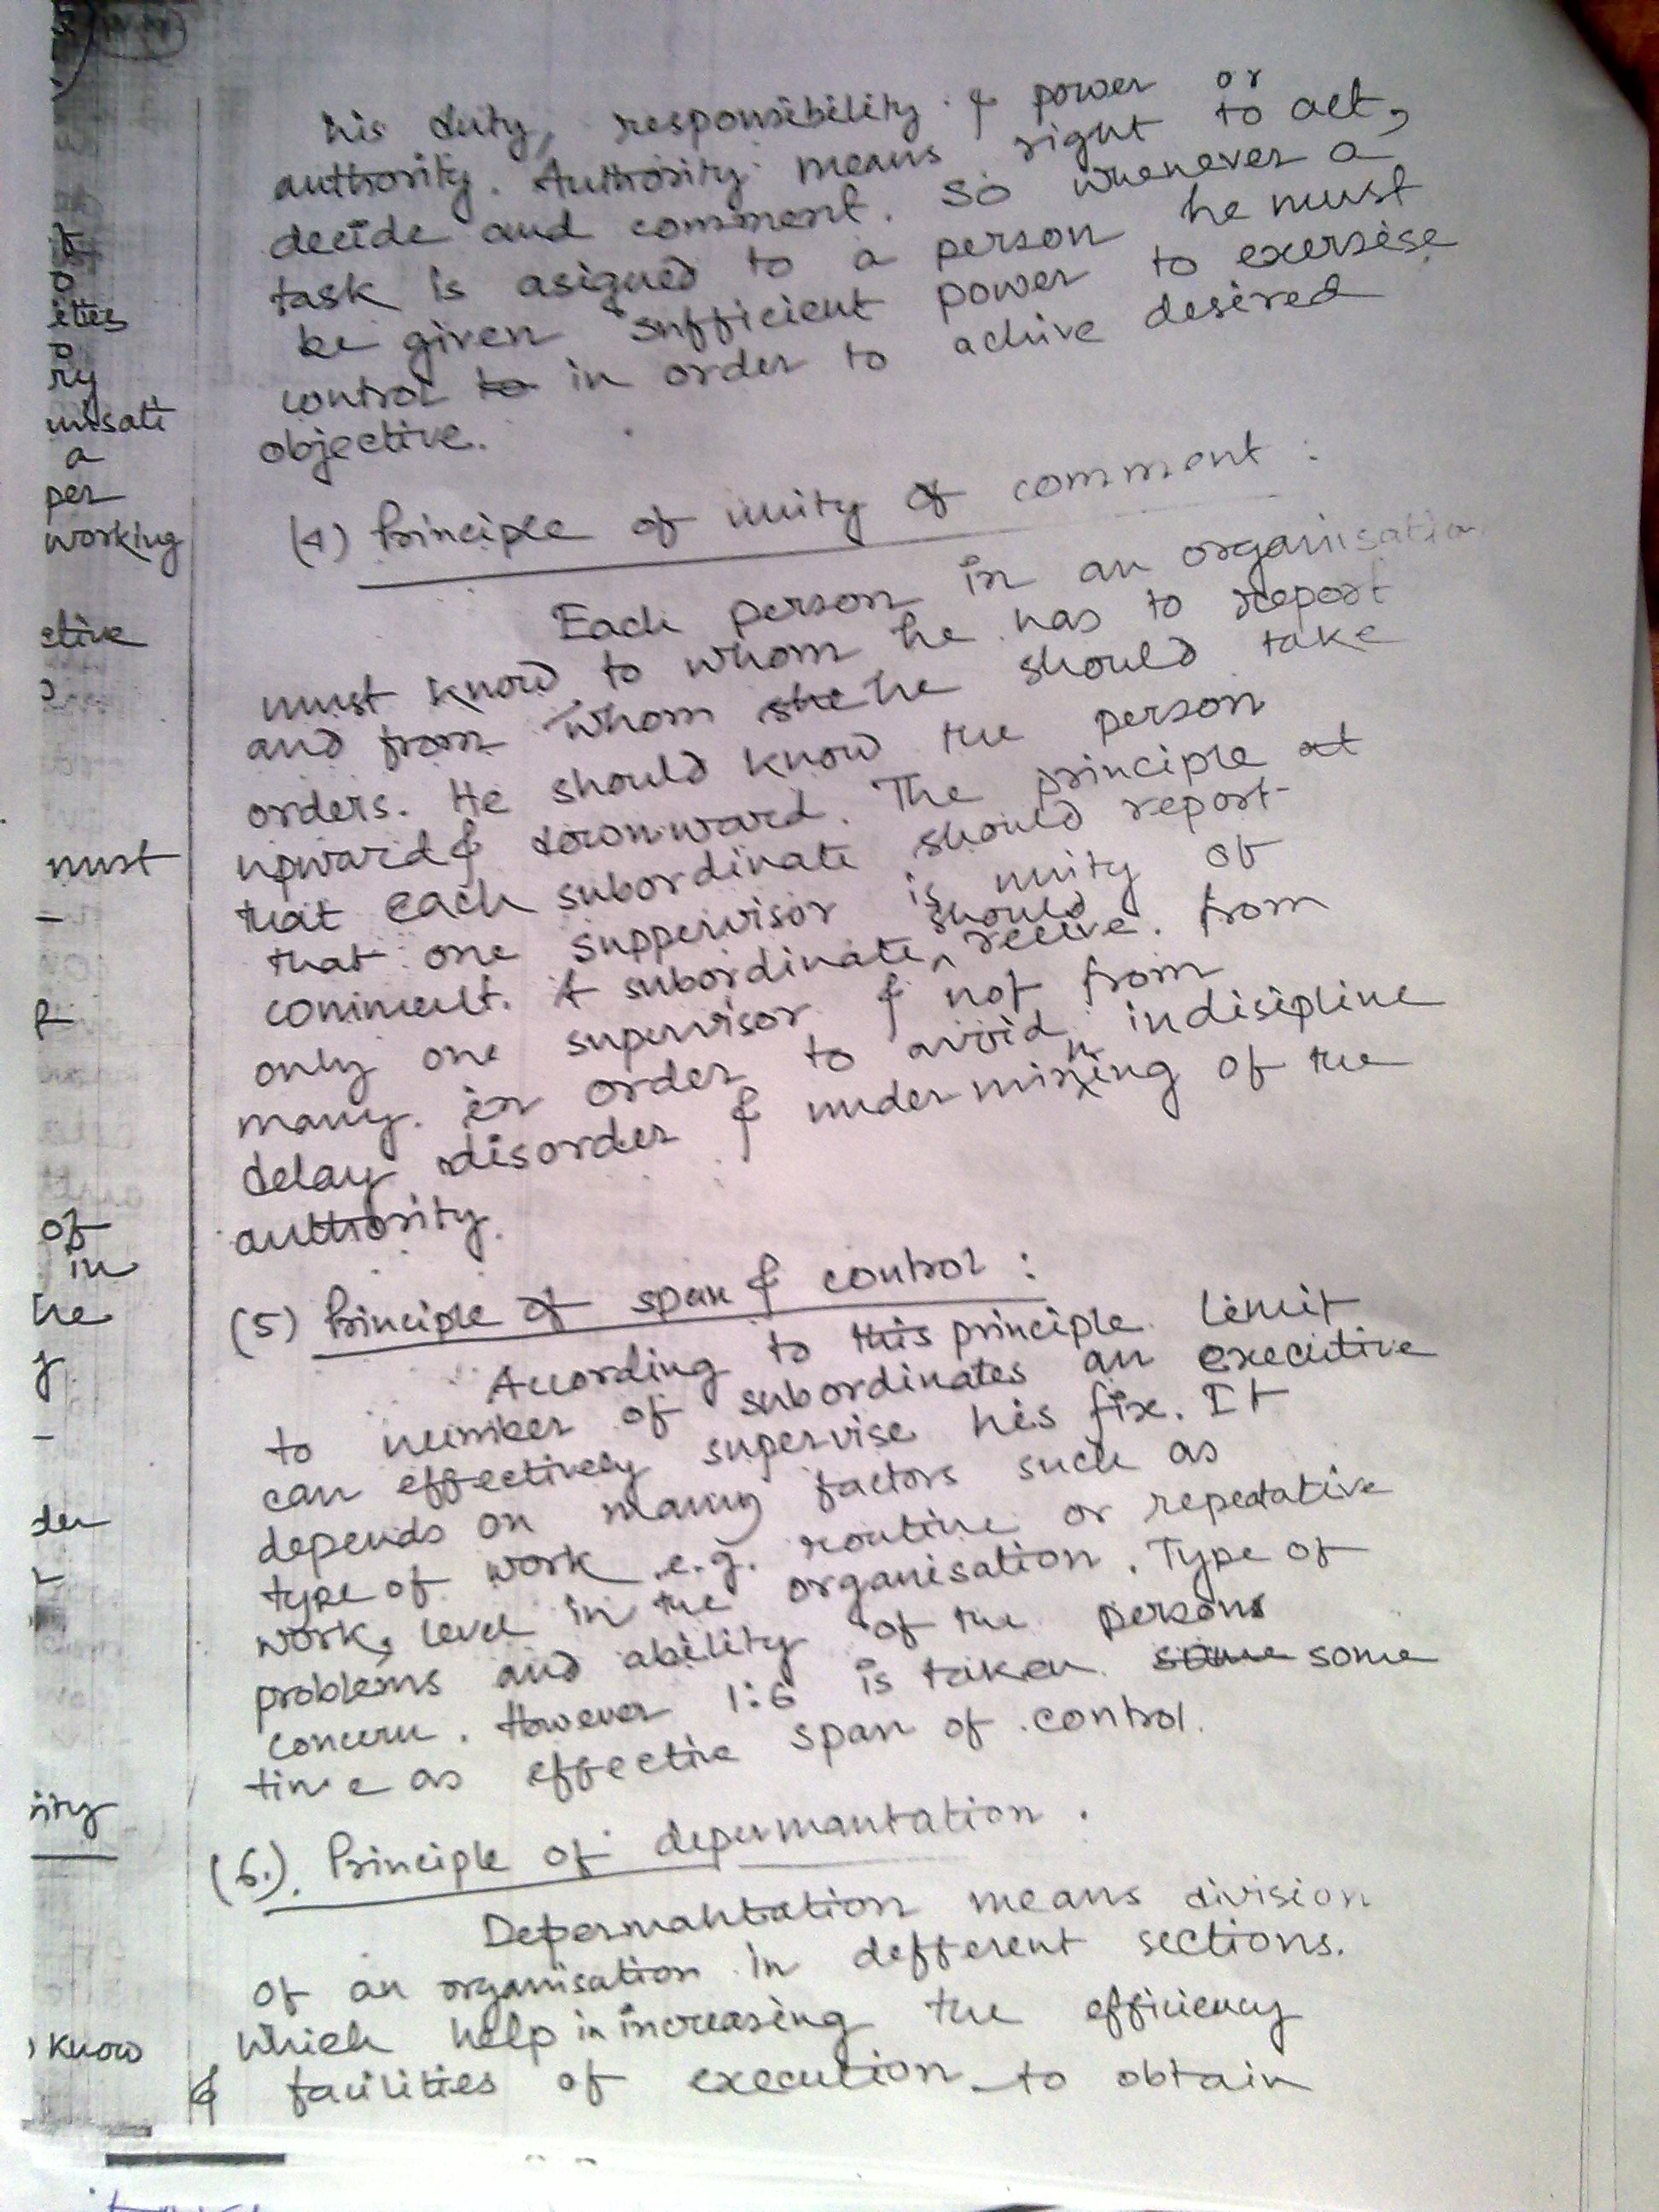 his duty, responsibility & power or
authority. Authority means right to act,
decide and comment. So whenever a
task is asigned to a person he must
be given sufficient power to exersise
control to in order to achive desired
objective.
(4) Principle of unity of comment :
Each person in an organisation
must know to whom he has to report
and from whom she he should take
orders. He should know the person
upward & downward. The principle at
that each subordinate should report
that one suppervisor is unity of
comment. A subordinate should receive from
only one supervisor & not from
many. in order to avoid indisipline
delay disorder & undermining of the
authority.
(5) Principle of span & control :
According to this principle limit
to number of subordinates an executive
can effectively supervise his fix. It
depends on many factors such as
type of work e.g. routine or repetative
work, level in the organisation. Type of
problems and ability of the persons
concern. However 1:6 is taken some some
time as effective span of control.
(6.). Principle of depermantation.
Depermantation means division
of an organisation in defferent sections.
Which help in increasing the efficiency
& facilities of execution to obtain
ities
ry
nisati
a
per
working
ctive
must
of
in
he
der
rity
know